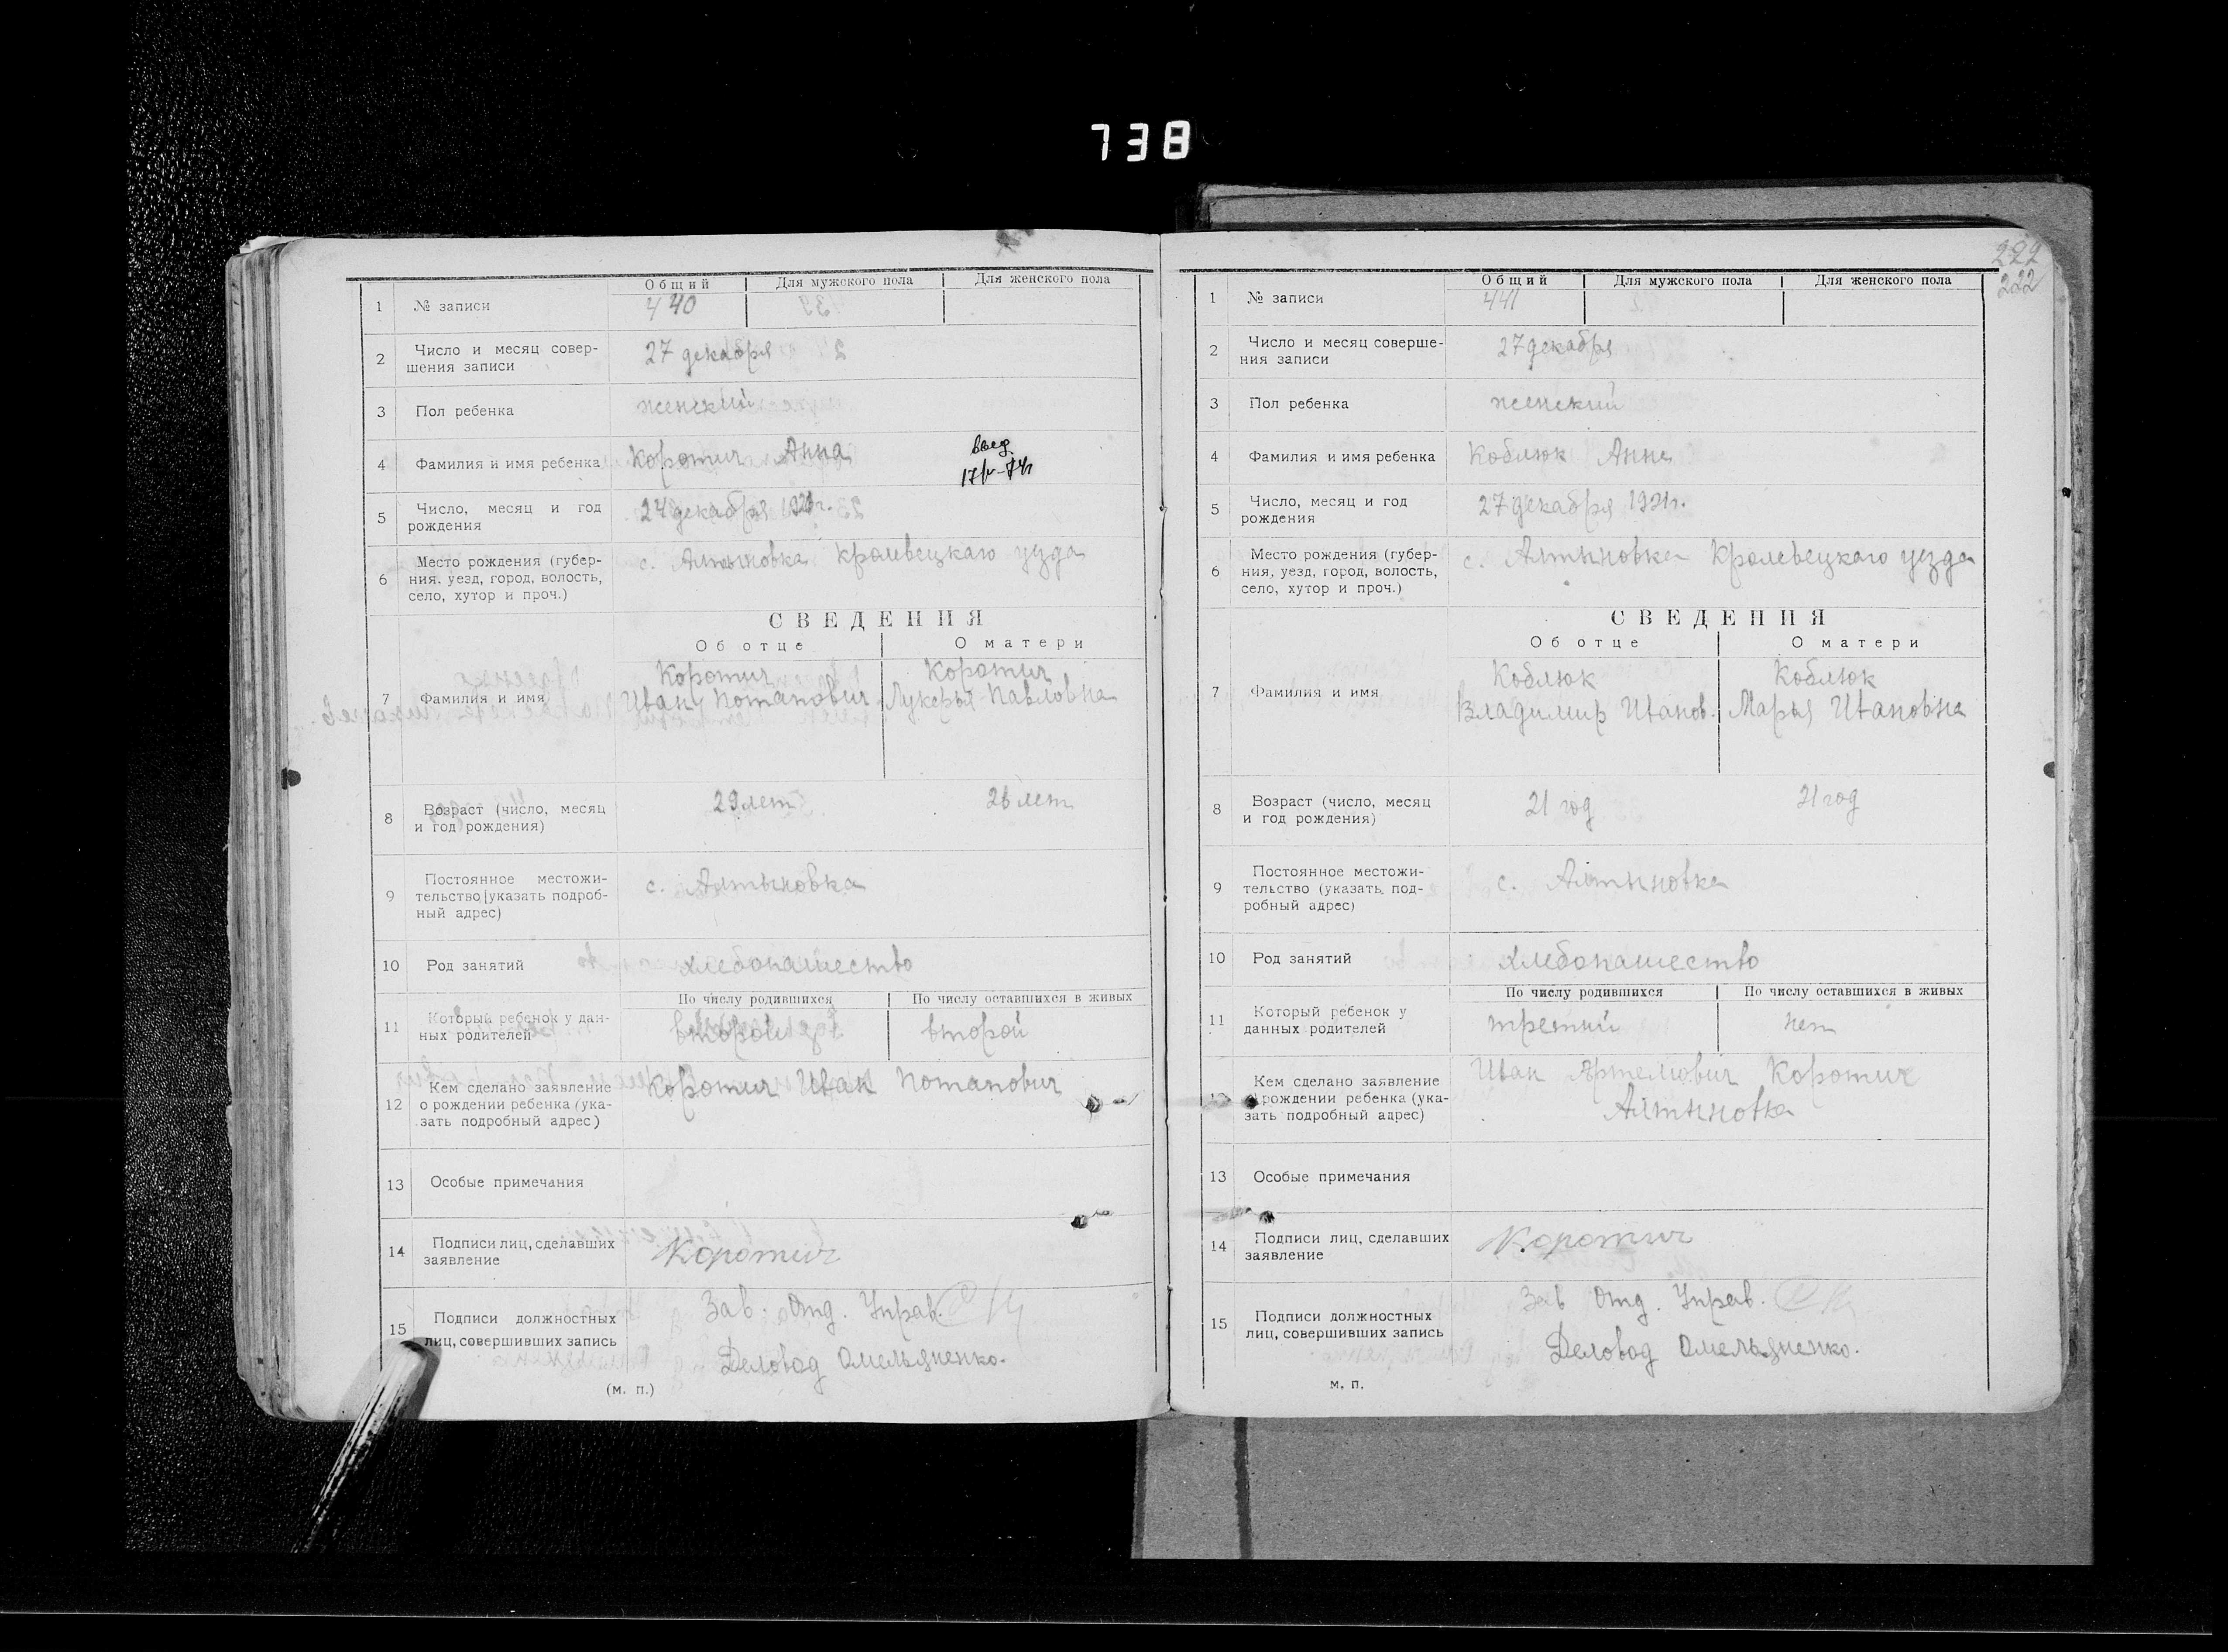 738
Общий Для мужского пола Для женского пола
1 № записи 440
2 Число и месяц совер-
шения записи 27 декабря
3 Пол ребенка женский
4 Фамилия и имя ребенка Коротич Анна
введ
5 Число, месяц и год
рождения 24 декабря 1921г.
6 Место рождения (губер-
ния, уезд, город, волость,
село, хутор и проч.) с. Алтыновка Кролевецкаго уезда
СВЕДЕНИЯ
Об отце О матери
7 Фамилия и имя Коротич Коротич
Иван Потапович Лукерья Павловна
8 Возраст (число, месяц
и год рождения) 29 лет 26 лет
9 Постоянное местожи-
тельство (указать подроб-
ный адрес) с. Алтыновка
10 Род занятий хлебопашество
По числу родившихся По числу оставшихся в живых
11 Который ребенок у дан-
ных родителей второй второй
12 Кем сделано заявление
о рождении ребенка (ука-
зать подробный адрес) Коротич Иван Потапович
13 Особые примечания
14 Подписи лиц, сделавших
заявление Коротич
15 Подписи должностных
лиц, совершивших запись Зав. Отд. Управ.
Деловод Омельяненко.
(м. п.)
222
222
Общий Для мужского пола Для женского пола
1 № записи 441
2 Число и месяц соверше-
ния записи 27 декабря
3 Пол ребенка женский
4 Фамилия и имя ребенка Коблюк Анна
5 Число, месяц и год
рождения 27 декабря 1921г.
6 Место рождения (губер-
ния, уезд, город, волость,
село, хутор и проч.) с. Алтыновка Кролевецкаго уезда
СВЕДЕНИЯ
Об отце О матери
7 Фамилия и имя Коблюк Коблюк
Владимир Иванов. Марья Ивановна
8 Возраст (число, месяц
и год рождения) 21 год 21 год
9 Постоянное местожи-
тельство (указать под-
робный адрес) с. Алтыновка
10 Род занятий хлебопашество
По числу родившихся По числу оставшихся в живых
11 Который ребенок у
данных родителей третий нет
12 Кем сделано заявление
о рождении ребенка (ука-
зать подробный адрес) Иван Артемович Коротич
Алтыновка
13 Особые примечания
14 Подписи лиц, сделавших
заявление Коротич
15 Подписи должностных
лиц, совершивших запись Зав Отд. Управ.
Деловод Омельяненко.
м. п.